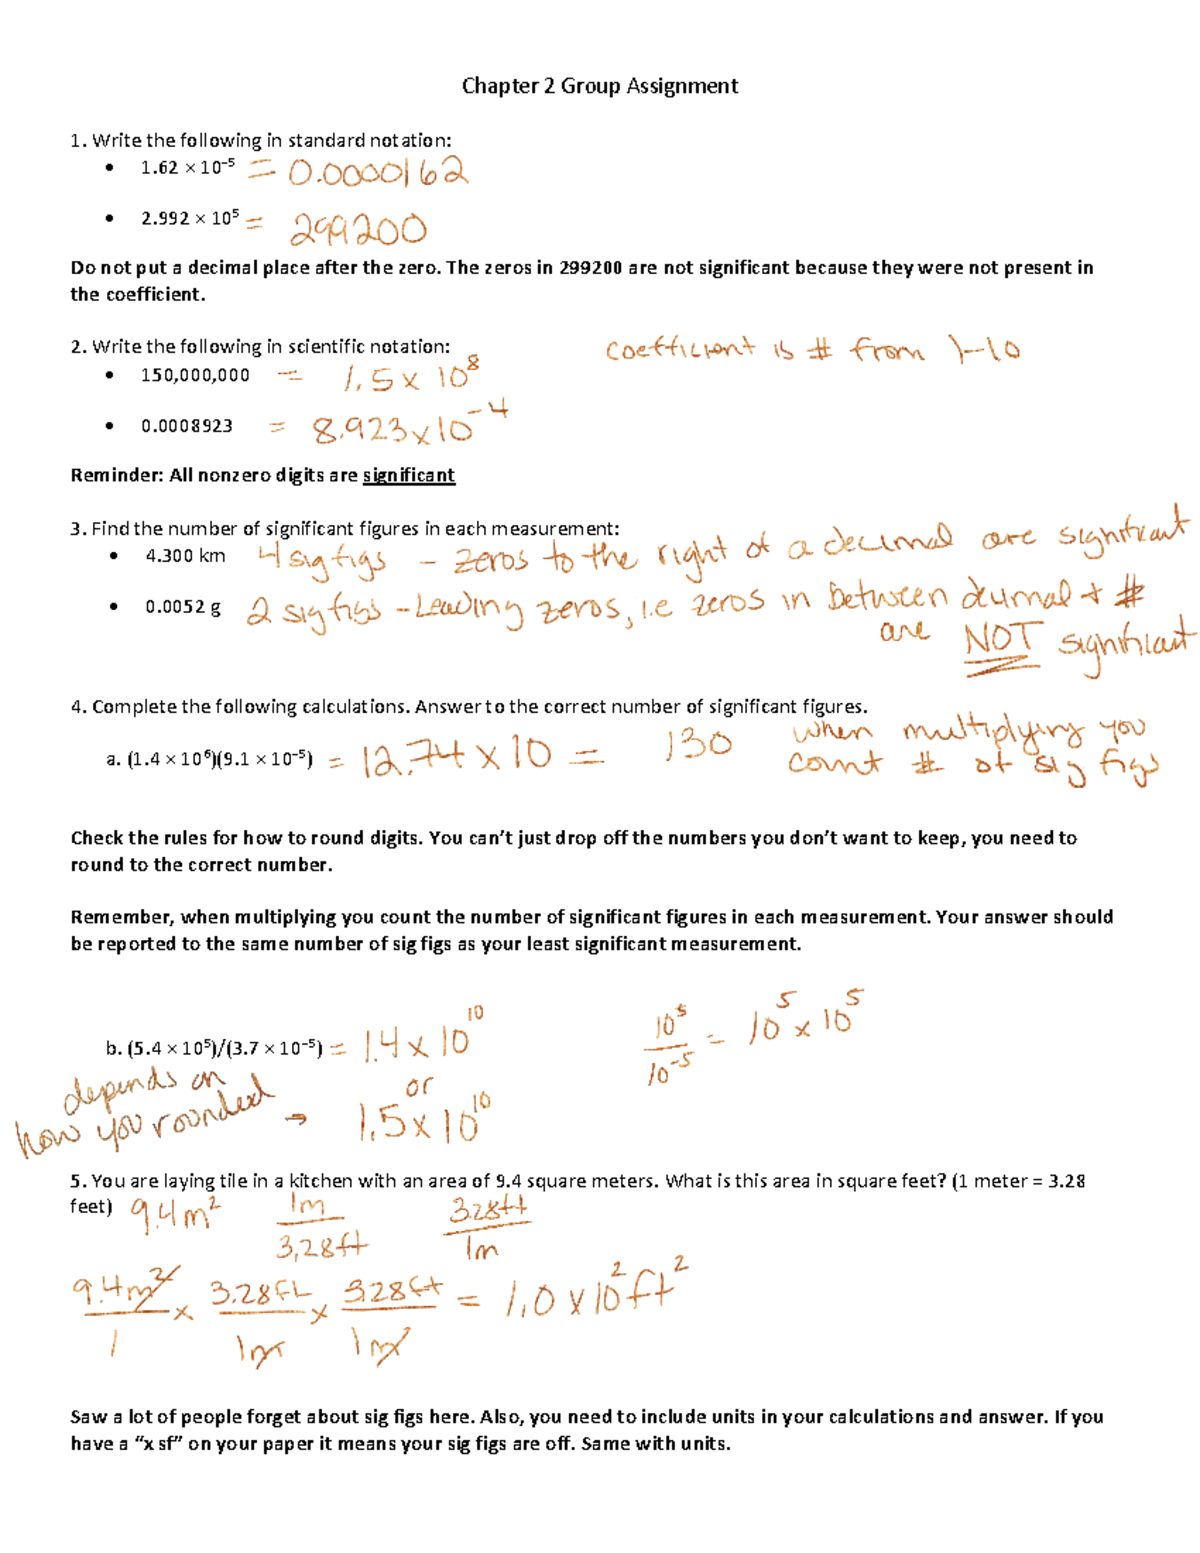 Chapter 2 Group Assignment
1. Write the following in standard notation:
• 1.62 × 10⁻⁵ = 0.0000162
• 2.992 × 10⁵ = 299200
Do not put a decimal place after the zero. The zeros in 299200 are not significant because they were not present in
the coefficient.
2. Write the following in scientific notation: coefficient is # from 1-10
• 150,000,000 = 1.5 x 10⁸
• 0.0008923 = 8.923x10⁻⁴
Reminder: All nonzero digits are significant
3. Find the number of significant figures in each measurement:
• 4.300 km 4 sig figs - zeros to the right of a decimal are significant
• 0.0052 g 2 sig figs - Leading zeros, i.e zeros in between decimal + #
are NOT significant
4. Complete the following calculations. Answer to the correct number of significant figures.
a. (1.4 × 10⁶)(9.1 × 10⁻⁵) = 12.74 x 10 = 130 when multiplying you
count # of sig figs
Check the rules for how to round digits. You can’t just drop off the numbers you don’t want to keep, you need to
round to the correct number.
Remember, when multiplying you count the number of significant figures in each measurement. Your answer should
be reported to the same number of sig figs as your least significant measurement.
b. (5.4 × 10⁵)/(3.7 × 10⁻⁵) = 1.4 x 10¹⁰ 10⁵/10⁻⁵ = 10⁵ x 10⁵
depends on or
how you rounded → 1.5 x 10¹⁰
5. You are laying tile in a kitchen with an area of 9.4 square meters. What is this area in square feet? (1 meter = 3.28
feet) 9.4m² 1m/3.28ft 3.28ft/1m
9.4m²/1 x 3.28ft/1m x 3.28ft/1m = 1.0 x 10² ft²
Saw a lot of people forget about sig figs here. Also, you need to include units in your calculations and answer. If you
have a “x sf” on your paper it means your sig figs are off. Same with units.